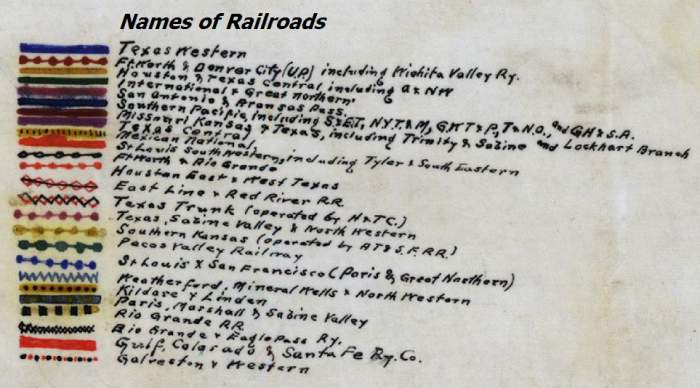 Names of Railroads
Texas Western
Ft. Worth & Denver City (U.P.) including Wichita Valley Ry.
Houston & Texas Central including A & NW
International & Great Northern
San Antonio & Aransas Pass.
Southern Pacific, including S.A.E.T., N.Y.T.&M, G.W.T&P, T&N.O., and G.H&S.A.
Missouri Kansas & Texas, including Trinity & Sabine and Lockhart Branch
Texas Central
Mexican National
St Louis Southwestern, including Tyler & South Eastern
Ft. Worth & Rio Grande
Houston East & West Texas
East Line & Red River RR.
Texas Trunk (operated by H&TC.)
Texas, Sabine Valley & North Western
Southern Kansas (operated by AT&S.F.RR.)
Pecos Valley Railway
St Louis & San Francisco (Paris & Great Northern)
Weatherford, Mineral Wells & North Western
Kildare & Linden
Paris, Marshall & Sabine Valley
Rio Grande RR.
Rio Grande & Eagle Pass Ry.
Gulf, Colorado & Santa Fe Ry. Co.
Galveston & Western